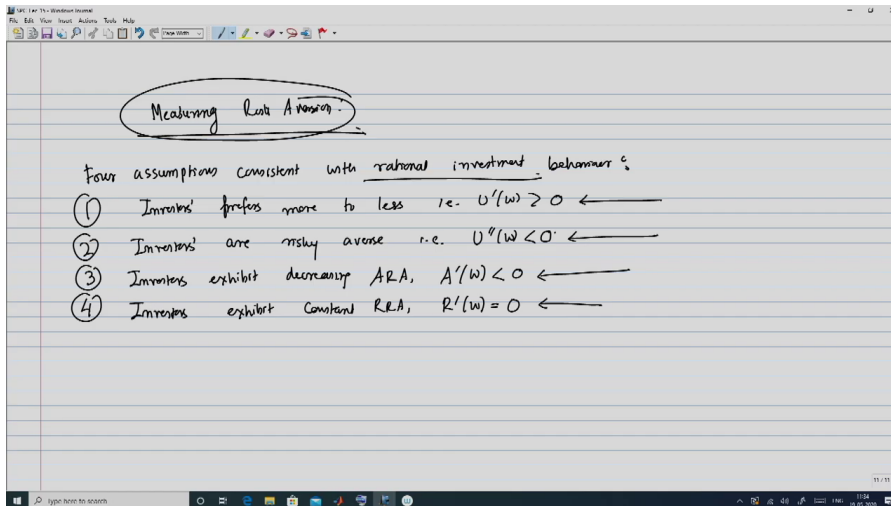 SPC Lec 15 - Windows Journal
File Edit View Insert Actions Tools Help
Page Width
Measuring Risk Aversion:
Four assumptions consistent with rational investment behaviour:
1 Investors' prefers more to less i.e. U'(W) ≥ 0
2 Investors' are risky averse i.e. U''(W) < 0
3 Investors exhibit decreasing ARA, A'(W) < 0
4 Investors exhibit Constant RRA, R'(W) = 0
11 / 11
Type here to search
ENG
11:24
16-05-2020